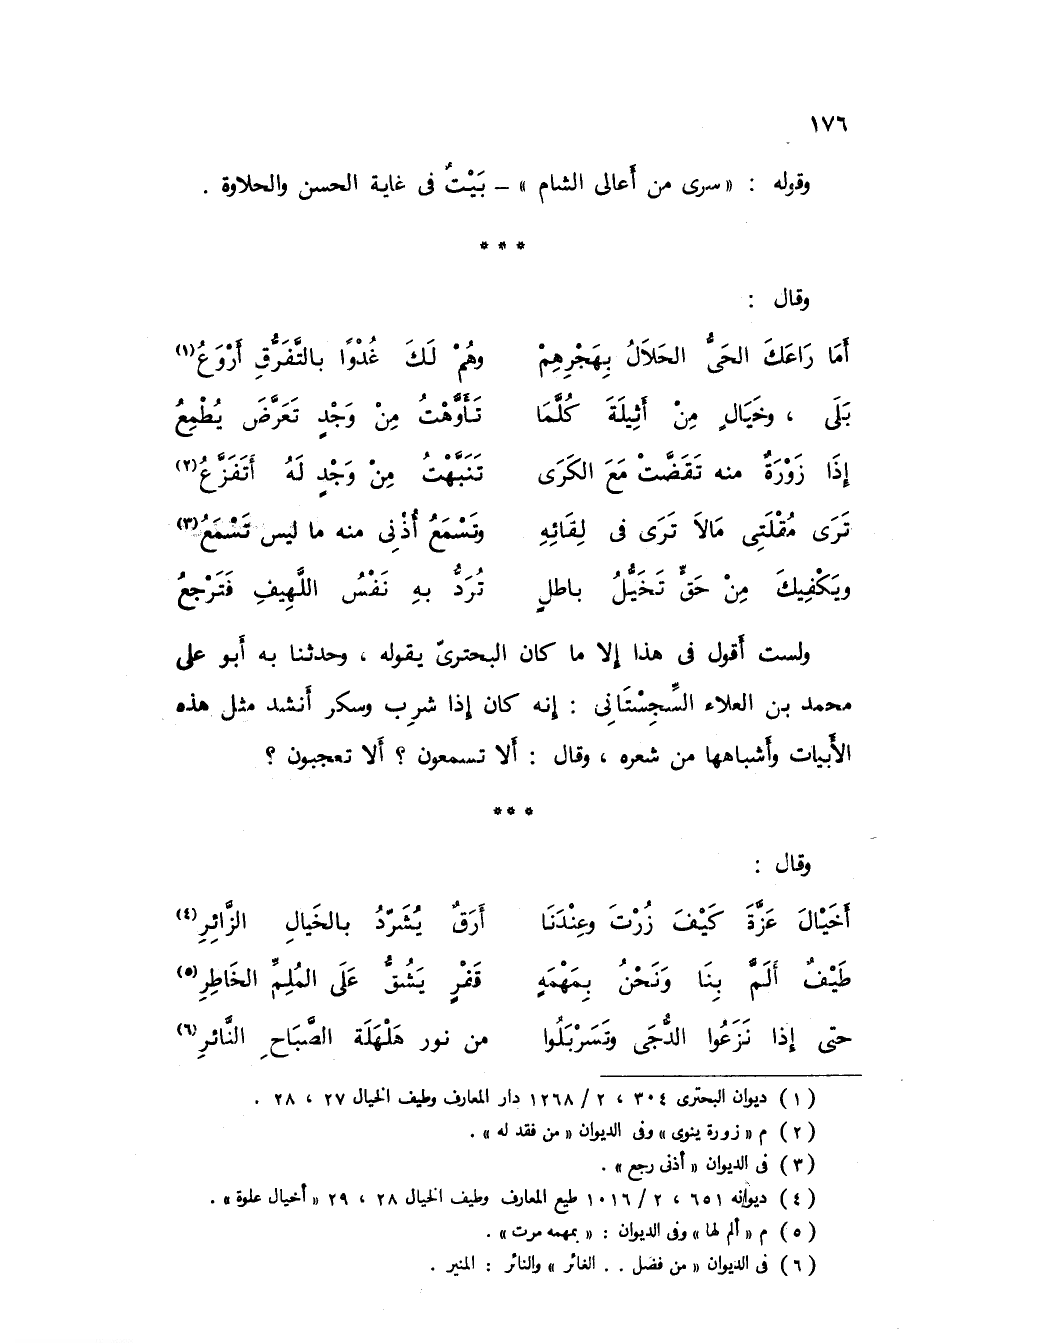 ١٧٦
وقوله : « سرى من أعالى الشام » – بَيْتٌ فى غاية الحسن والحلاوة .
* * *
وقال :
أَمَا رَاعَكَ الحَىُّ الحَلَالُ بِهَجْرِهِمْ وهُمْ لَكَ غُدْوًا بالتَّفَرُّقِ أَرْوَعُ(١)
بَلَى ، وخَيَالٍ مِنْ أَثِيلَةَ كُلَّمَا تَأَوَّهْتُ مِنْ وَجْدٍ تَعَرَّضَ يُطْمِعُ
إِذَا زَوْرَةٌ منه تَقَضَّتْ مَعَ الكَرَى تَنَبَّهْتُ مِنْ وَجْدٍ لَهُ أَتَفَزَّعُ(٢)
تَرَى مُقْلَتِى مَالاَ تَرَى فى لِقَائِهِ وتَسْمَعُ أُذْنِى منه ما ليس تَسْمَعُ(٣)
ويَكْفِيكَ مِنْ حَقٍّ تَخَيُّلُ باطلٍ تُرَدُّ بهِ نَفْسُ اللَّهِيفِ فَتَرْجِعُ
ولست أقول فى هذا إلا ما كان البحترىّ يقوله ، وحدثنا به أبو على
محمد بن العلاء السِّجِسْتَانِى : إنه كان إذا شرب وسكر أنشد مثل هذه
الأبيات وأشباهها من شعره ، وقال : ألا تسمعون ؟ ألا تعجبون ؟
* * *
وقال :
أَخَيْالَ عَزَّةَ كَيْفَ زُرْتَ وعِنْدَنَا أَرَقٌ يُشَرِّدُ بالخَيالِ الزَّائِرِ(٤)
طَيْفٌ أَلَمَّ بِنَا وَنَحْنُ بِمَهْمَهٍ قَفْرٍ يَشُقُّ عَلَى المُلِمِّ الخَاطِرِ(٥)
حتى إذا نَزَعُوا الدُّجَى وتَسَرْبَلُوا من نور هَلْهَلَة الصَّبَاحِ النَّائرِ(٦)
( ١ ) ديوان البحترى ٣٠٤ ، ٢ / ١٢٦٨ دار المعارف وطيف الخيال ٢٧ ، ٢٨ .
( ٢ ) م « زورة ينوى » وفى الديوان « من فقد له » .
( ٣ ) فى الديوان « أذنى رجع » .
( ٤ ) ديوانه ٦٥١ ، ٢ / ١٠١٦ طبع المعارف وطيف الخيال ٢٨ ، ٢٩ « أخيال علوة » .
( ٥ ) م « ألم لها » وفى الديوان : « بمهمه مرت » .
( ٦ ) فى الديوان « من فضل . . الغائر » والنائر : المنير .